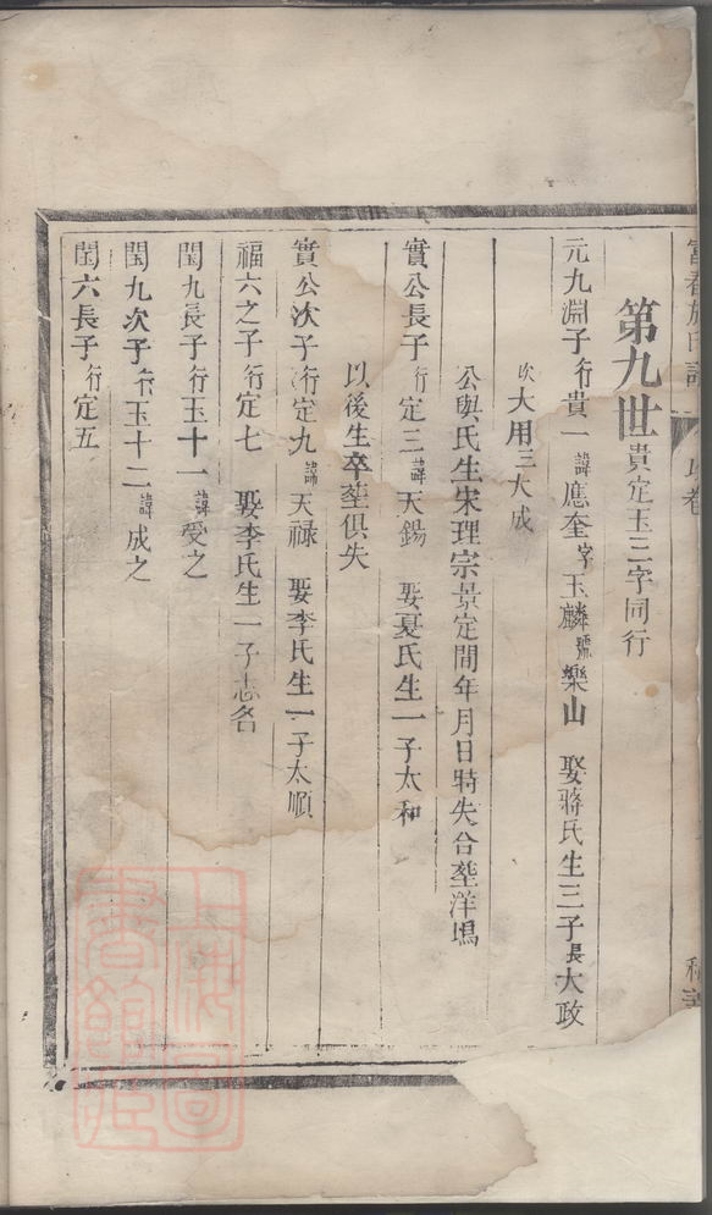 富春施氏譜
第九世 貴定玉三字同行
元九淵子行貴一諱應奎字玉麟號樂山 娶蔣氏生三子長大政
次大用三大成
公與氏生宋理宗景定間年月日時失合塟洋塢
實公長子行定三諱天錫 娶夏氏生一子太和
以後生卒塟俱失
實公次子行定九諱天祿 娶李氏生一子太順
福六之子行定七 娶李氏生一子志名
閏九長子行玉十一諱受之
閏九次子行玉十二諱成之
閏六長子行定五
上海圖書館藏